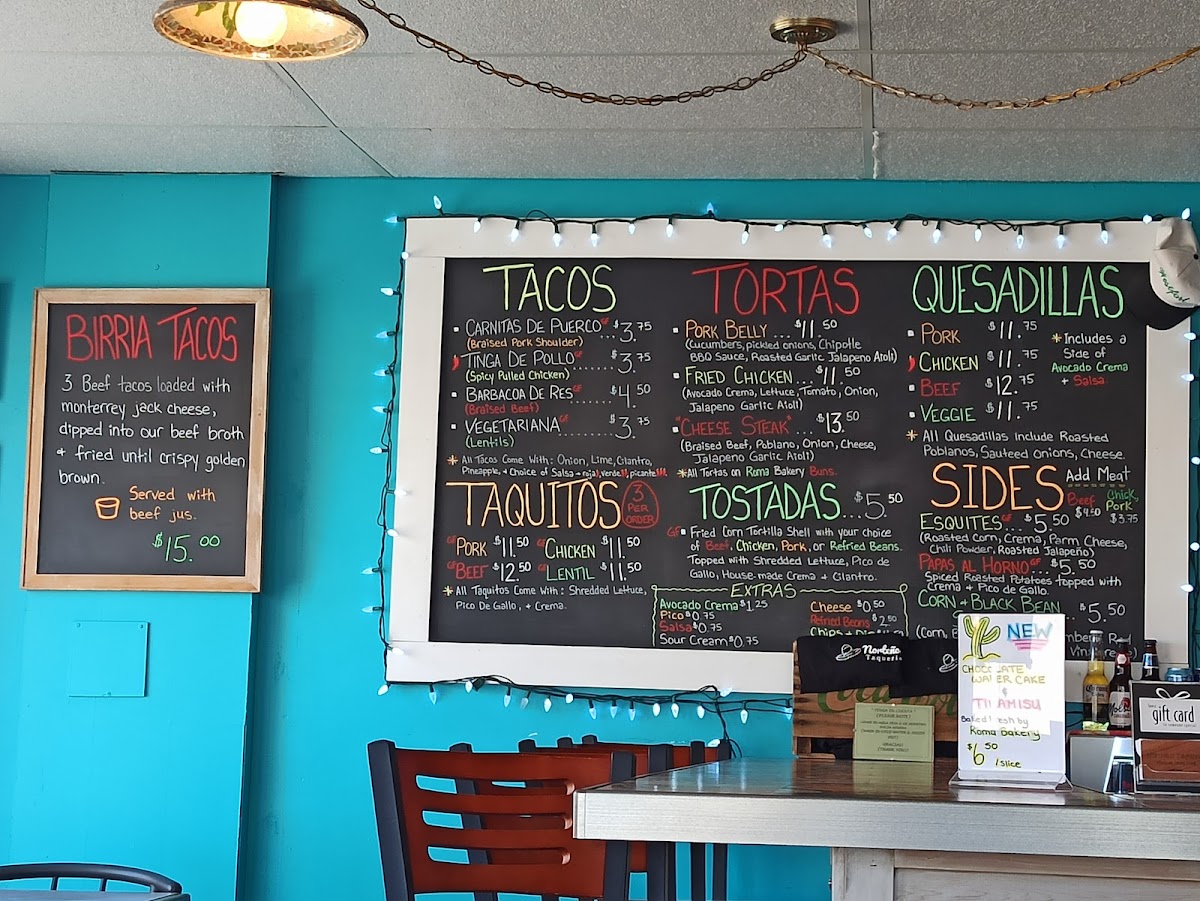 BIRRIA TACOS
3 Beef tacos loaded with
monterrey jack cheese,
dipped into our beef broth
+ fried until crispy golden
brown.
Served with
beef jus.
$15.00
TACOS
CARNITAS DE PUERCO GF ... $3.75
(Braised Pork Shoulder)
TINGA DE POLLO GF ... $3.75
(Spicy Pulled Chicken)
BARBACOA DE RES GF ...... $4.50
(Braised Beef)
VEGETARIANA GF ........ $3.75
(Lentils)
* All Tacos Come With: Onion, Lime, Cilantro,
Pineapple, + Choice of Salsa → roja, verde, picante
TAQUITOS
3 PER ORDER
GF PORK $11.50 GF CHICKEN $11.50
GF BEEF $12.50 GF LENTIL $11.50
* All Taquitos Come With: Shredded Lettuce,
Pico De Gallo, + Crema.
TORTAS
PORK BELLY ... $11.50
(Cucumbers, pickled onions, Chipotle
BBQ Sauce, Roasted Garlic Jalapeno Aioli)
FRIED CHICKEN ... $11.50
(Avocado Crema, Lettuce, Tomato, Onion,
Jalapeno Garlic Aioli)
"CHEESE STEAK" ... $13.50
(Braised Beef, Poblano, Onion, Cheese,
Jalapeno Garlic Aioli)
* All Tortas on Roma Bakery Buns.
TOSTADAS ... $5.50
GF Fried Corn Tortilla Shell with your choice
of Beef, Chicken, Pork, or Refried Beans.
Topped with Shredded Lettuce, Pico de
Gallo, House-made Crema + Cilantro.
EXTRAS
Avocado Crema $1.25
Pico $0.75
Salsa $0.75
Sour Cream $0.75
Cheese $0.50
Refried Beans $2.50
QUESADILLAS
PORK $11.75
CHICKEN $11.75
BEEF $12.75
VEGGIE $11.75
* Includes a
Side of
Avocado Crema
+ Salsa
* All Quesadillas Include Roasted
Poblanos, Sauteed Onions, Cheese.
SIDES
Add Meat
Beef $4.50
Chick, Pork $3.75
ESQUITES GF ... $5.50
(Roasted Corn, Crema, Parm Cheese,
Chili Powder, Roasted Jalapeño)
PAPAS AL HORNO GF ... $5.50
Spiced Roasted Potatoes topped with
Crema + Pico de Gallo.
CORN + BLACK BEAN $5.50
(Corn,
Norteño
Taqueria
NEW
CHOCOLATE
WAFER CAKE
&
TIRAMISU
Baked fresh by
Roma Bakery
$6.50 /slice
(PLEASE NOTE)
GRACIAS!
(THANK YOU!)
gift card